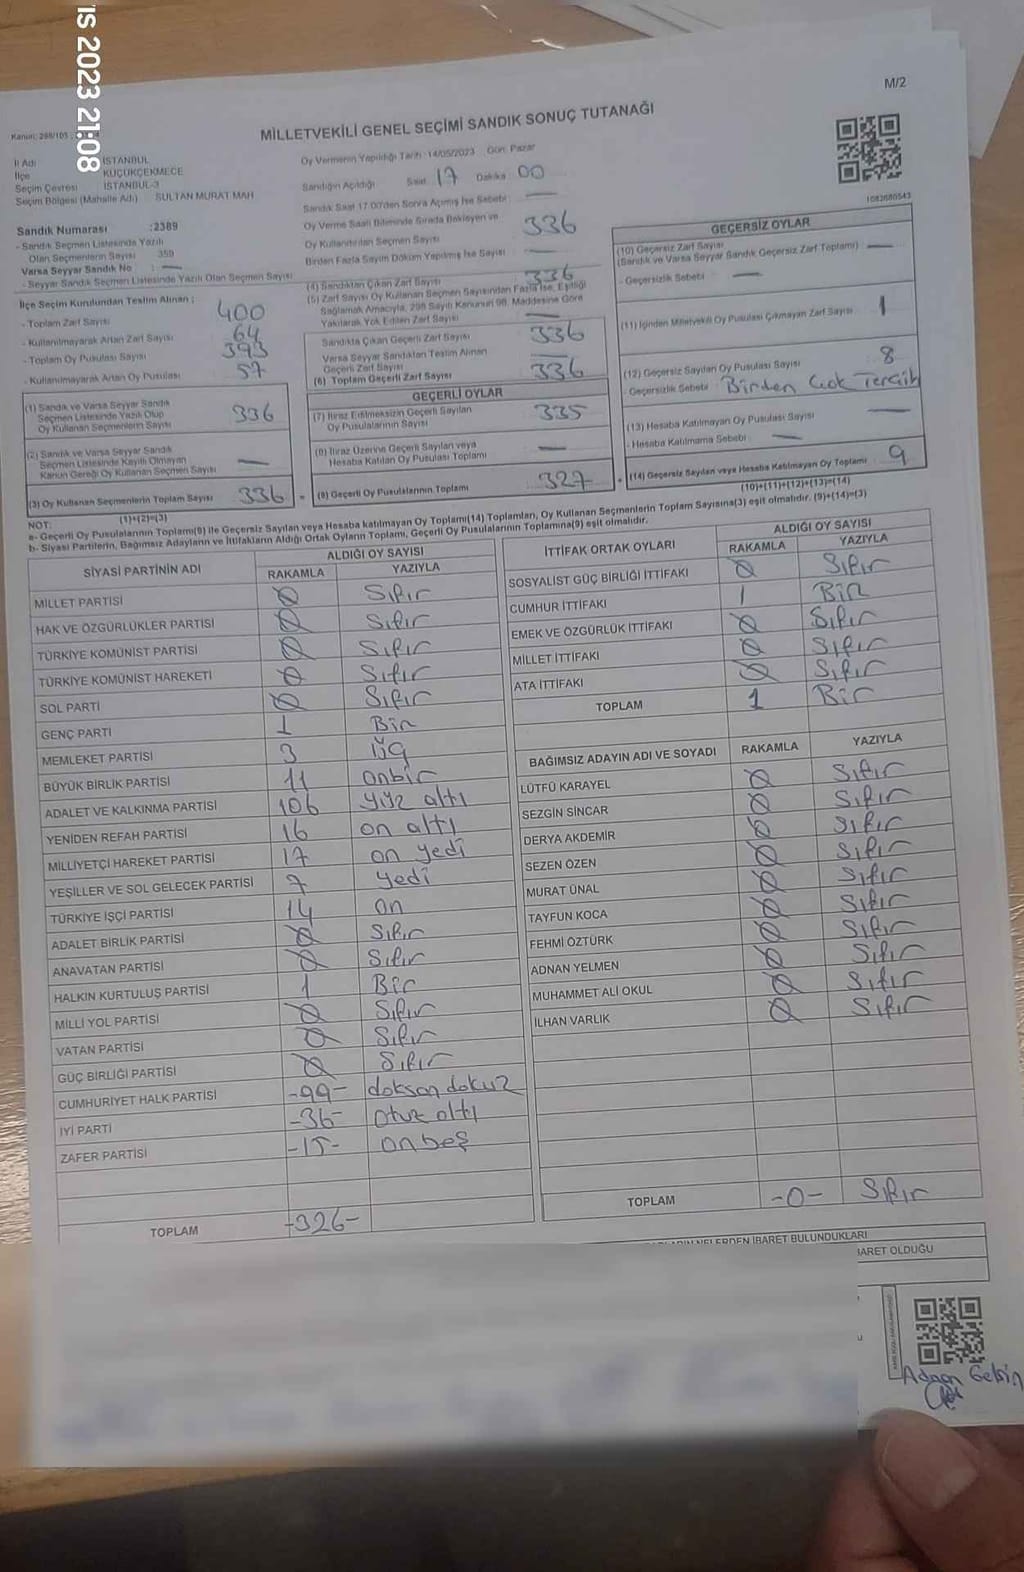 IS 2023 21:08
M/2
MİLLETVEKİLİ GENEL SEÇİMİ SANDIK SONUÇ TUTANAĞI
Kanun: 298/105
İl Adı : İSTANBUL
İlçe : KÜÇÜKÇEKMECE
Seçim Çevresi : İSTANBUL-3
Seçim Bölgesi (Mahalle Adı) : SULTAN MURAT MAH
Oy Vermenin Yapıldığı Tarih :14/05/2023 Gün: Pazar
Sandığın Açıldığı Saat 17 Dakika 00
Sandık Saat 17.00'den Sonra Açılmış İse Sebebi : —
Oy Verme Saati Bitiminde Sırada Bekleyen ve
Oy Kullandırılan Seçmen Sayısı 336
Birden Fazla Sayım Döküm Yapılmış İse Sayısı —
1082680543
Sandık Numarası :2389
- Sandık Seçmen Listesinde Yazılı
Olan Seçmenlerin Sayısı : 359
Varsa Seyyar Sandık No : —
- Seyyar Sandık Seçmen Listesinde Yazılı Olan Seçmen Sayısı
İlçe Seçim Kurulundan Teslim Alınan ;
- Toplam Zarf Sayısı 400
- Kullanılmayarak Artan Zarf Sayısı 64
- Toplam Oy Pusulası Sayısı 393
- Kullanılmayarak Artan Oy Pusulası 57
(1) Sandık ve Varsa Seyyar Sandık
Seçmen Listesinde Yazılı Olup
Oy Kullanan Seçmenlerin Sayısı 336
(2) Sandık ve Varsa Seyyar Sandık
Seçmen Listesinde Kayıtlı Olmayan
Kanun Gereği Oy Kullanan Seçmen Sayısı —
(3) Oy Kullanan Seçmenlerin Toplam Sayısı 336
(1)+(2)=(3)
(4) Sandıktan Çıkan Zarf Sayısı 336
(5) Zarf Sayısı Oy Kullanan Seçmen Sayısından Fazla İse, Eşitliği
Sağlamak Amacıyla, 298 Sayılı Kanunun 98. Maddesine Göre
Yakılarak Yok Edilen Zarf Sayısı —
Sandıkta Çıkan Geçerli Zarf Sayısı 336
Varsa Seyyar Sandıktan Teslim Alınan
Geçerli Zarf Sayısı —
(6) Toplam Geçerli Zarf Sayısı 336
GEÇERLİ OYLAR
(7) İtiraz Edilmeksizin Geçerli Sayılan
Oy Pusulalarının Sayısı 335
(8) İtiraz Üzerine Geçerli Sayılan veya
Hesaba Katılan Oy Pusulası Toplamı —
(9) Geçerli Oy Pusulalarının Toplamı 327
GEÇERSİZ OYLAR
(10) Geçersiz Zarf Sayısı
(Sandık ve Varsa Seyyar Sandık Geçersiz Zarf Toplamı) —
- Geçersizlik Sebebi : —
(11) İçinden Milletvekili Oy Pusulası Çıkmayan Zarf Sayısı 1
(12) Geçersiz Sayılan Oy Pusulası Sayısı 8
- Geçersizlik Sebebi : Birden Çok Tercih
(13) Hesaba Katılmayan Oy Pusulası Sayısı —
- Hesaba Katılmama Sebebi : —
(14) Geçersiz Sayılan veya Hesaba Katılmayan Oy Toplamı 9
(10)+(11)+(12)+(13)=(14)
NOT:
a- Geçerli Oy Pusulalarının Toplamı(9) ile Geçersiz Sayılan veya Hesaba katılmayan Oy Toplamı(14) Toplamları, Oy Kullanan Seçmenlerin Toplam Sayısına(3) eşit olmalıdır. (9)+(14)=(3)
b- Siyasi Partilerin, Bağımsız Adayların ve İttifakların Aldığı Ortak Oyların Toplamı, Geçerli Oy Pusulalarının Toplamına(9) eşit olmalıdır.
SİYASİ PARTİNİN ADI ALDIĞI OY SAYISI
RAKAMLA YAZIYLA
MİLLET PARTİSİ 0 Sıfır
HAK VE ÖZGÜRLÜKLER PARTİSİ 0 Sıfır
TÜRKİYE KOMÜNİST PARTİSİ 0 Sıfır
TÜRKİYE KOMÜNİST HAREKETİ 0 Sıfır
SOL PARTİ 0 Sıfır
GENÇ PARTİ 1 Bir
MEMLEKET PARTİSİ 3 Üç
BÜYÜK BİRLİK PARTİSİ 11 onbir
ADALET VE KALKINMA PARTİSİ 106 yüz altı
YENİDEN REFAH PARTİSİ 16 on altı
MİLLİYETÇİ HAREKET PARTİSİ 17 on yedi
YEŞİLLER VE SOL GELECEK PARTİSİ 7 yedi
TÜRKİYE İŞÇİ PARTİSİ 14 on
ADALET BİRLİK PARTİSİ 0 Sıfır
ANAVATAN PARTİSİ 0 Sıfır
HALKIN KURTULUŞ PARTİSİ 1 Bir
MİLLİ YOL PARTİSİ 0 Sıfır
VATAN PARTİSİ 0 Sıfır
GÜÇ BİRLİĞİ PARTİSİ 0 Sıfır
CUMHURİYET HALK PARTİSİ -99- doksan dokuz
İYİ PARTİ -36- otuz altı
ZAFER PARTİSİ -15- on beş
TOPLAM -326-
İTTİFAK ORTAK OYLARI ALDIĞI OY SAYISI
RAKAMLA YAZIYLA
SOSYALİST GÜÇ BİRLİĞİ İTTİFAKI 0 Sıfır
CUMHUR İTTİFAKI 1 Bir
EMEK VE ÖZGÜRLÜK İTTİFAKI 0 Sıfır
MİLLET İTTİFAKI 0 Sıfır
ATA İTTİFAKI 0 Sıfır
TOPLAM 1 Bir
BAĞIMSIZ ADAYIN ADI VE SOYADI RAKAMLA YAZIYLA
LÜTFÜ KARAYEL 0 Sıfır
SEZGİN SİNCAR 0 Sıfır
DERYA AKDEMİR 0 Sıfır
SEZEN ÖZEN 0 Sıfır
MURAT ÜNAL 0 Sıfır
TAYFUN KOCA 0 Sıfır
FEHMİ ÖZTÜRK 0 Sıfır
ADNAN YELMEN 0 Sıfır
MUHAMMET ALİ OKUL 0 Sıfır
İLHAN VARLIK 0 Sıfır
TOPLAM -0- Sıfır
NELERDEN İBARET BULUNDUKLARI
BARET OLDUĞU
Adnan